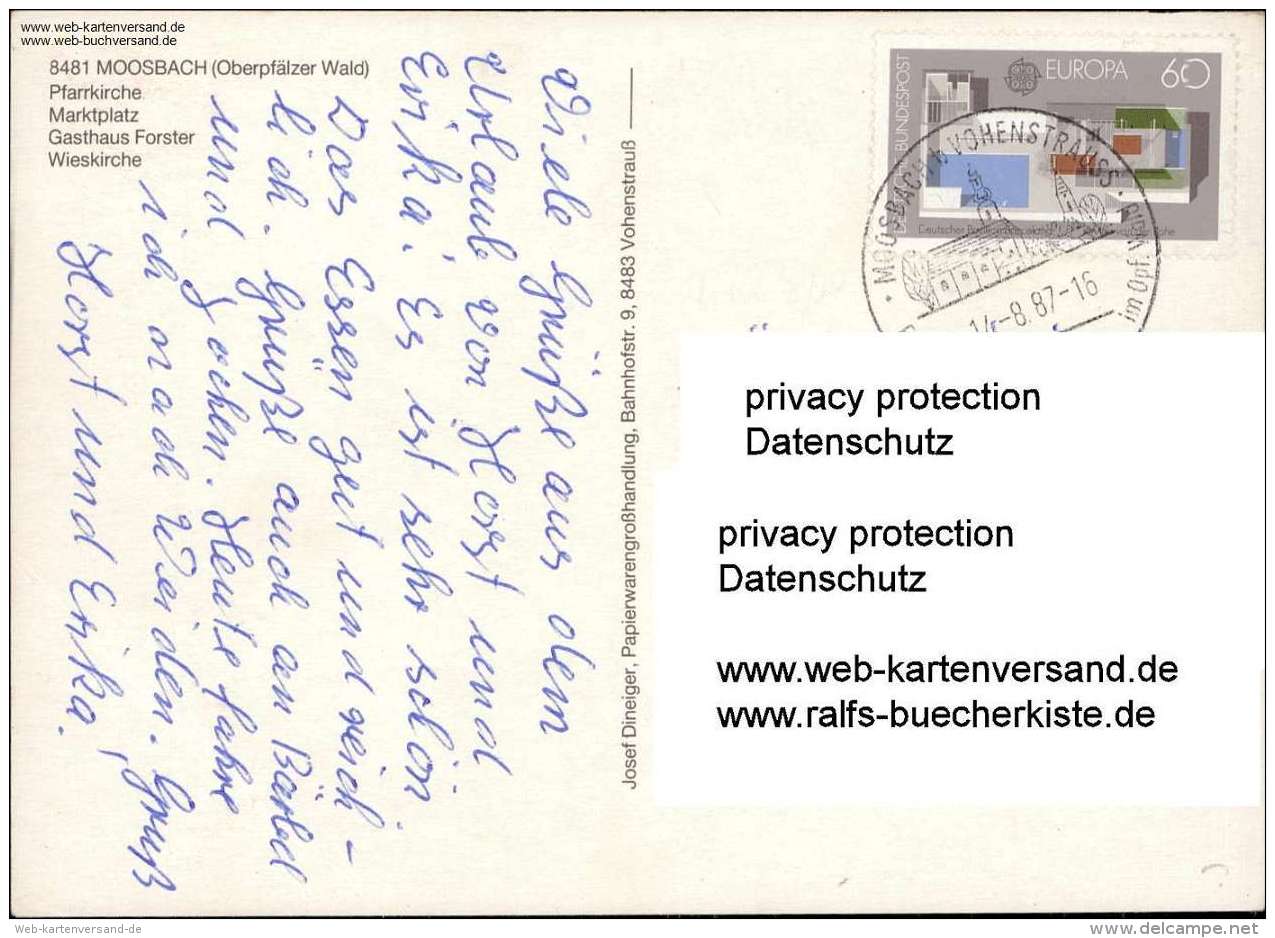 www.web-kartenversand.de
www.web-buchversand.de
8481 MOOSBACH (Oberpfälzer Wald)
Pfarrkirche
Marktplatz
Gasthaus Forster
Wieskirche
Viele Grüße aus dem
Urlaub von Horst und
Erika. Es ist sehr schön
Das Essen gut und reich-
lich. Grüße auch an Bärbel
und Jochen. Heute fahre
ich nach Weiden. Gruß
Horst und Erika.
Josef Dineiger, Papierwarengroßhandlung, Bahnhofstr. 9, 8483 Vohenstrauß
DEUTSCHE BUNDESPOST
EUROPA 60
MOOSBACH b VOHENSTRAUSS
im Opf.
14-8.87-16
privacy protection
Datenschutz
privacy protection
Datenschutz
www.web-kartenversand.de
www.ralfs-buecherkiste.de
Web-kartenversand-de
delcampe.net